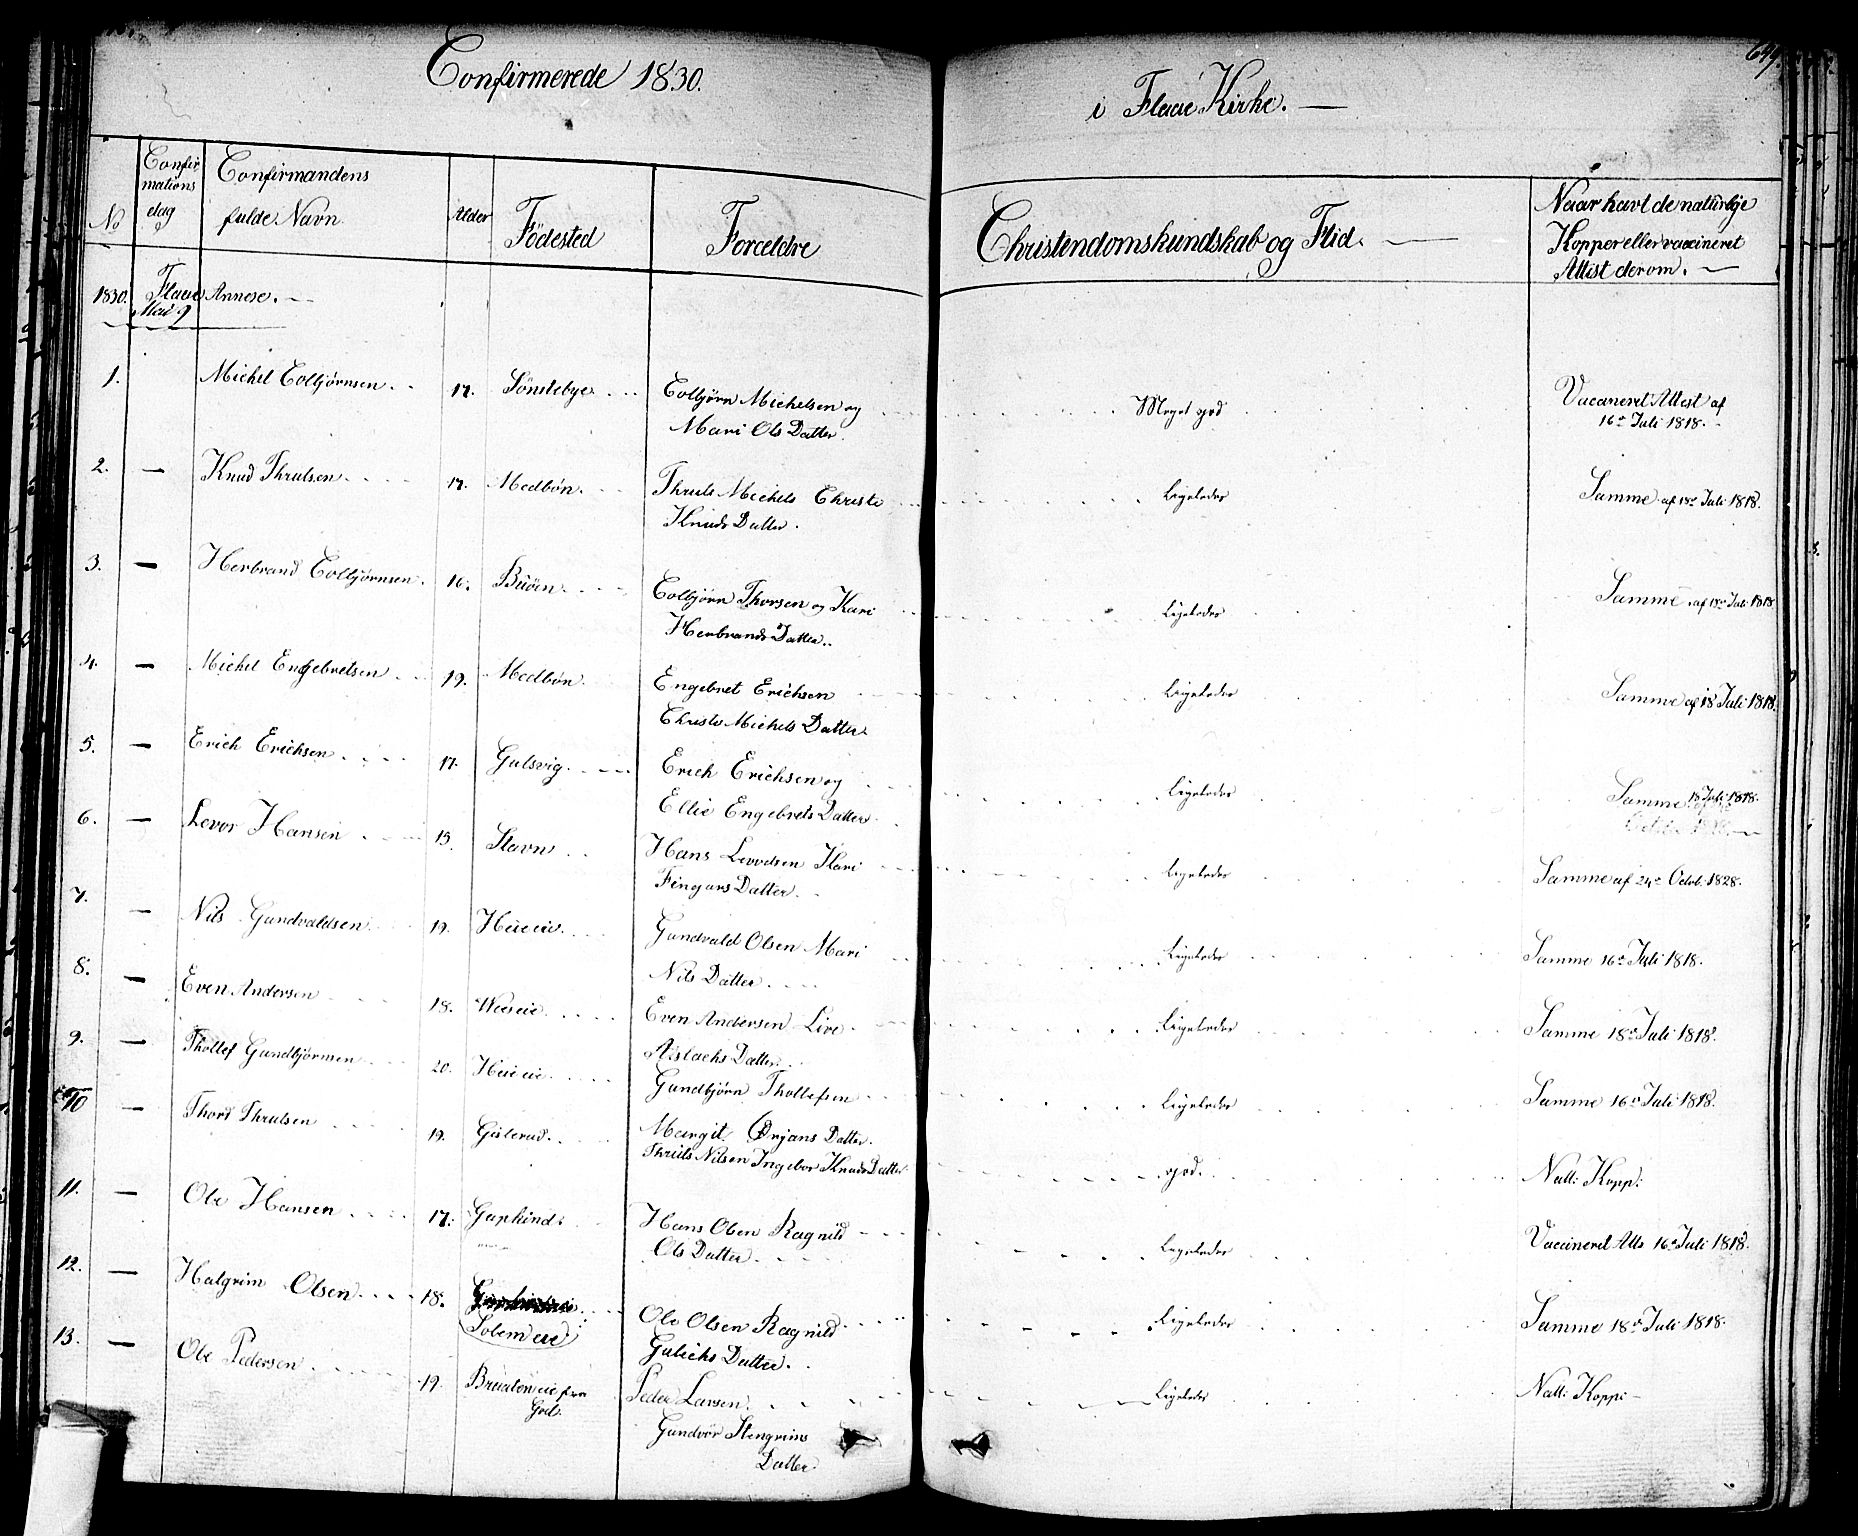 Confirmerede 1830.
i Flaae Kirke. —
649.
No
Confir
mations
dag
Confirmandens
fulde Navn
Alder
Födested
Forældre
Christendomskundskab og Flid. —
Naar havt de naturlige
Kopper eller vaccineret
Attist derom. —
1830. Flaae Annexe. —
Mai 9
1. Michel Colbjörnsen. 17. Sönstebye. Colbjörn Michelsen og Meget god Vaccineret Attest af
Mari Ols Datter. 16de Juli 1818.
2. — Knud Thrulsen. 17. Medbön. Thruls Michels Christi Ligeledes Samme af 18de Juli 1818.
Knuds Datter.
3. — Herbrand Colbjörnsen. 16. Buöen. Colbjörn Thorsen og Kari Ligeledes Samme af 18de Juli 1818
Herbrands Datter.
4. — Michel Engebretsen 19. Medbön. Engebret Erichsen Ligeledes Samme af 18 Juli 1818.
Christi Michels Datter
5. — Erich Erichsen 17. Gulsvig. Erich Erichsen og Ligeledes Samme 18 Juli 1818.
Ellie Engebrets Datter
6. — Levor Hansen 15. Stavn Hans Levordsen Kari Ligeledes Samme af 24de Octob. 1828.
Fingars Datter.
7. — Nils Gundvaldsen 19. Hüeeie. Gundvald Olsen Mari Ligeledes Samme 16de Juli 1818.
Nils Datter.
8. — Even Andersen 18. Even Andersen Live Ligeledes Samme 18de Juli 1818.
Aslachs Datter.
9. — Thollef Gundbjörnsen 20. Hüeeie. Gundbjörn Thollefsen Ligeledes Samme 16de Juli 1818.
Margit Ørjans Datter.
10 — Thord Thrulsen 19. Gislerud. Thruls Nilsen Ingebor Knuds Datter god. Natt: Kopp:
11. — Ole Hansen 17. Gaptund: Hans Olsen Ragnild Ligeledes Vaccineret Atts 16de Juli 1818.
Ols Datter.
12. — Halgrim Olsen. 18. Ole Olsen Ragnild Ligeledes Samme 18de Juli 1818.
Gulichs Datter.
13. — Ole Pedersen 19. Peder Larsen. Ligeledes Natt: Kopp:
Goel.
Gundvör Stengrims
Datter